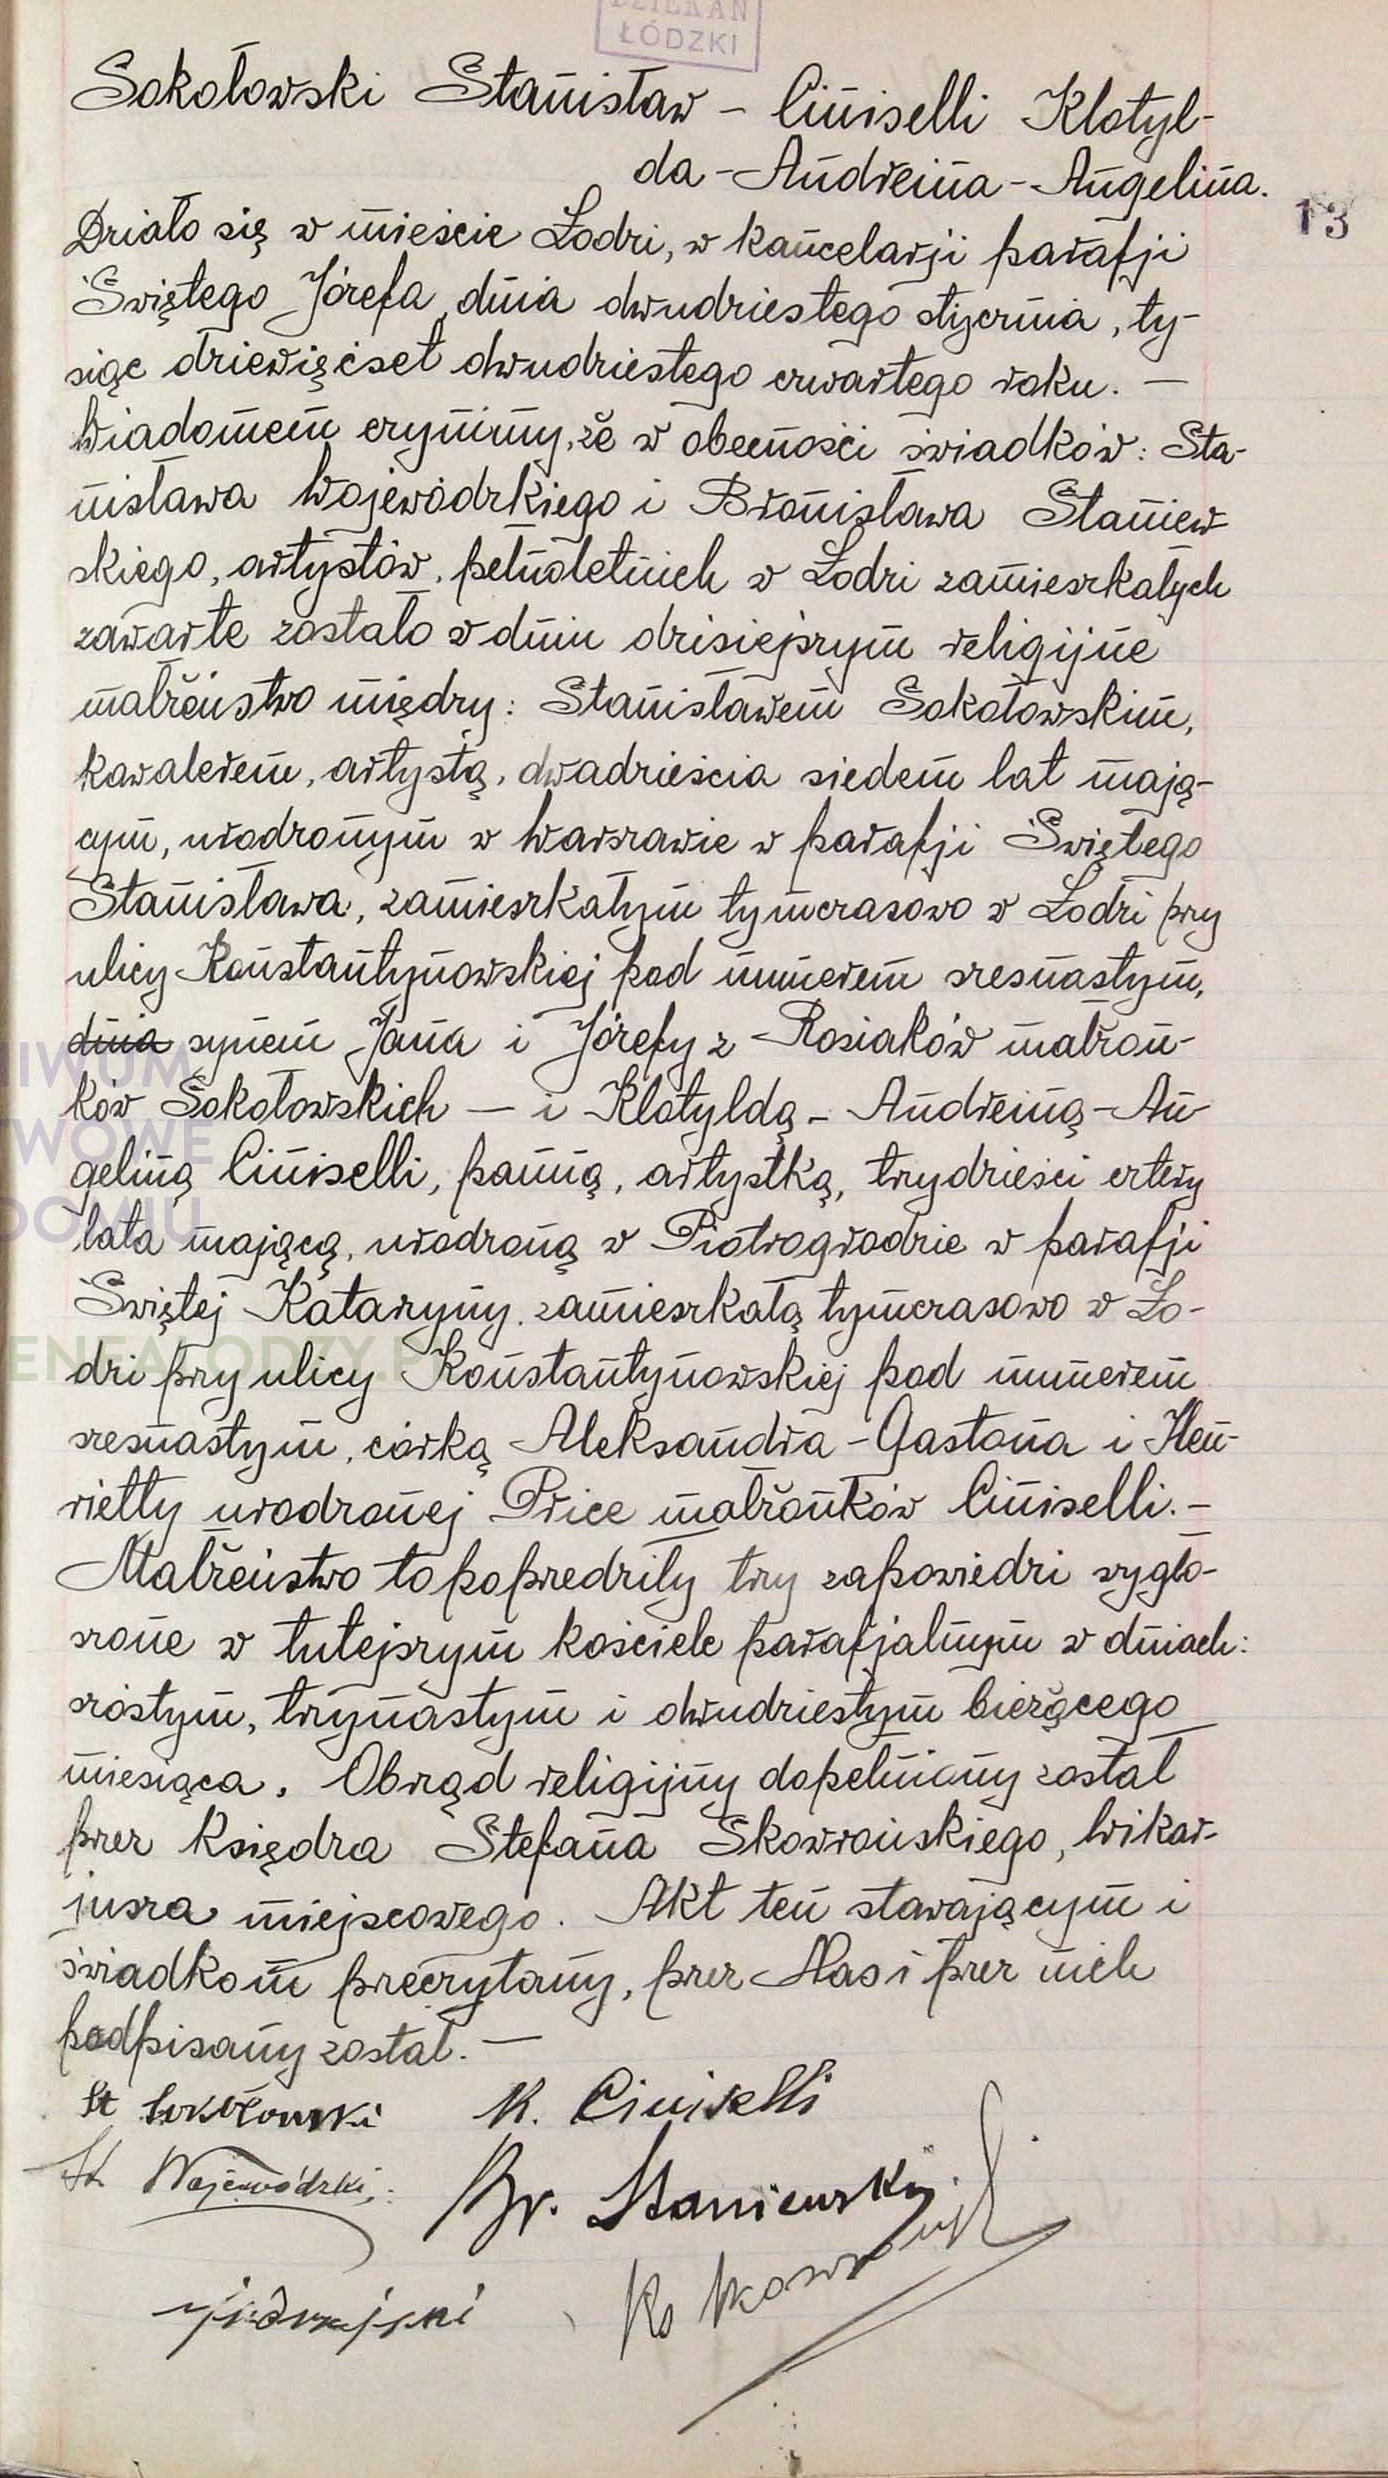 DZIEKAN
ŁÓDZKI
Sokołowski Stanisław – Ciniselli Klotyl-
da – Andreina – Angelina.
13
Działo się w mieście Łodzi, w kancelarji parafji
Świętego Józefa, dnia dwudziestego stycznia, ty-
siąc dziewięćset dwudziestego czwartego roku. —
Wiadomem czynimy, że w obecności świadków: Sta-
nisława Wojewódzkiego i Bronisława Staniew-
skiego, artystów, pełnoletnich w Łodzi zamieszkałych
zawarte zostało w dniu dzisiejszym religijne
małżeństwo między: Stanisławem Sokołowskim,
kawalerem, artystą, dwadzieścia siedem lat mają-
cym, urodzonym w Warszawie w parafji Świętego
Stanisława, zamieszkałym tymczasowo w Łodzi przy
ulicy Konstantynowskiej pod numerem szesnastym,
dnia synem Jana i Józefy z Rosiaków małżon-
ków Sokołowskich — i Klotyldą – Andreiną – An-
geliną Ciniselli, panną, artystką, trzydzieści cztery
lata mającą, urodzoną w Piotrogrodzie w parafji
Świętej Katarzyny, zamieszkałą tymczasowo w Ło-
dzi przy ulicy Konstantynowskiej pod numerem
szesnastym, córką Aleksandra – Gastona i Hen-
rietty urodzonej Price małżonków Ciniselli. –
Małżeństwo to poprzedziły trzy zapowiedzi wygło-
szone w tutejszym kościele parafjalnym w dniach:
szóstym, trzynastym i dwudziestym bieżącego
miesiąca. Obrząd religijny dopełniony został
przez księdza Stefana Skowrońskiego, wikar-
jusza miejscowego. Akt ten stawającym i
świadkom przeczytany, przez Nas i przez nich
podpisany został. —
St Sokołowski K. Ciniselli
St Wojewódzki
Br. Staniewski